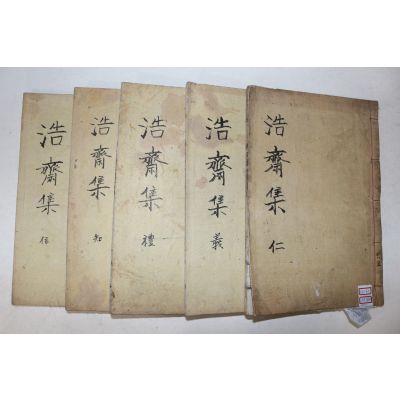 浩齋集 仁
浩齋集 義
浩齋集 禮
浩齋集 知
浩齋集 信